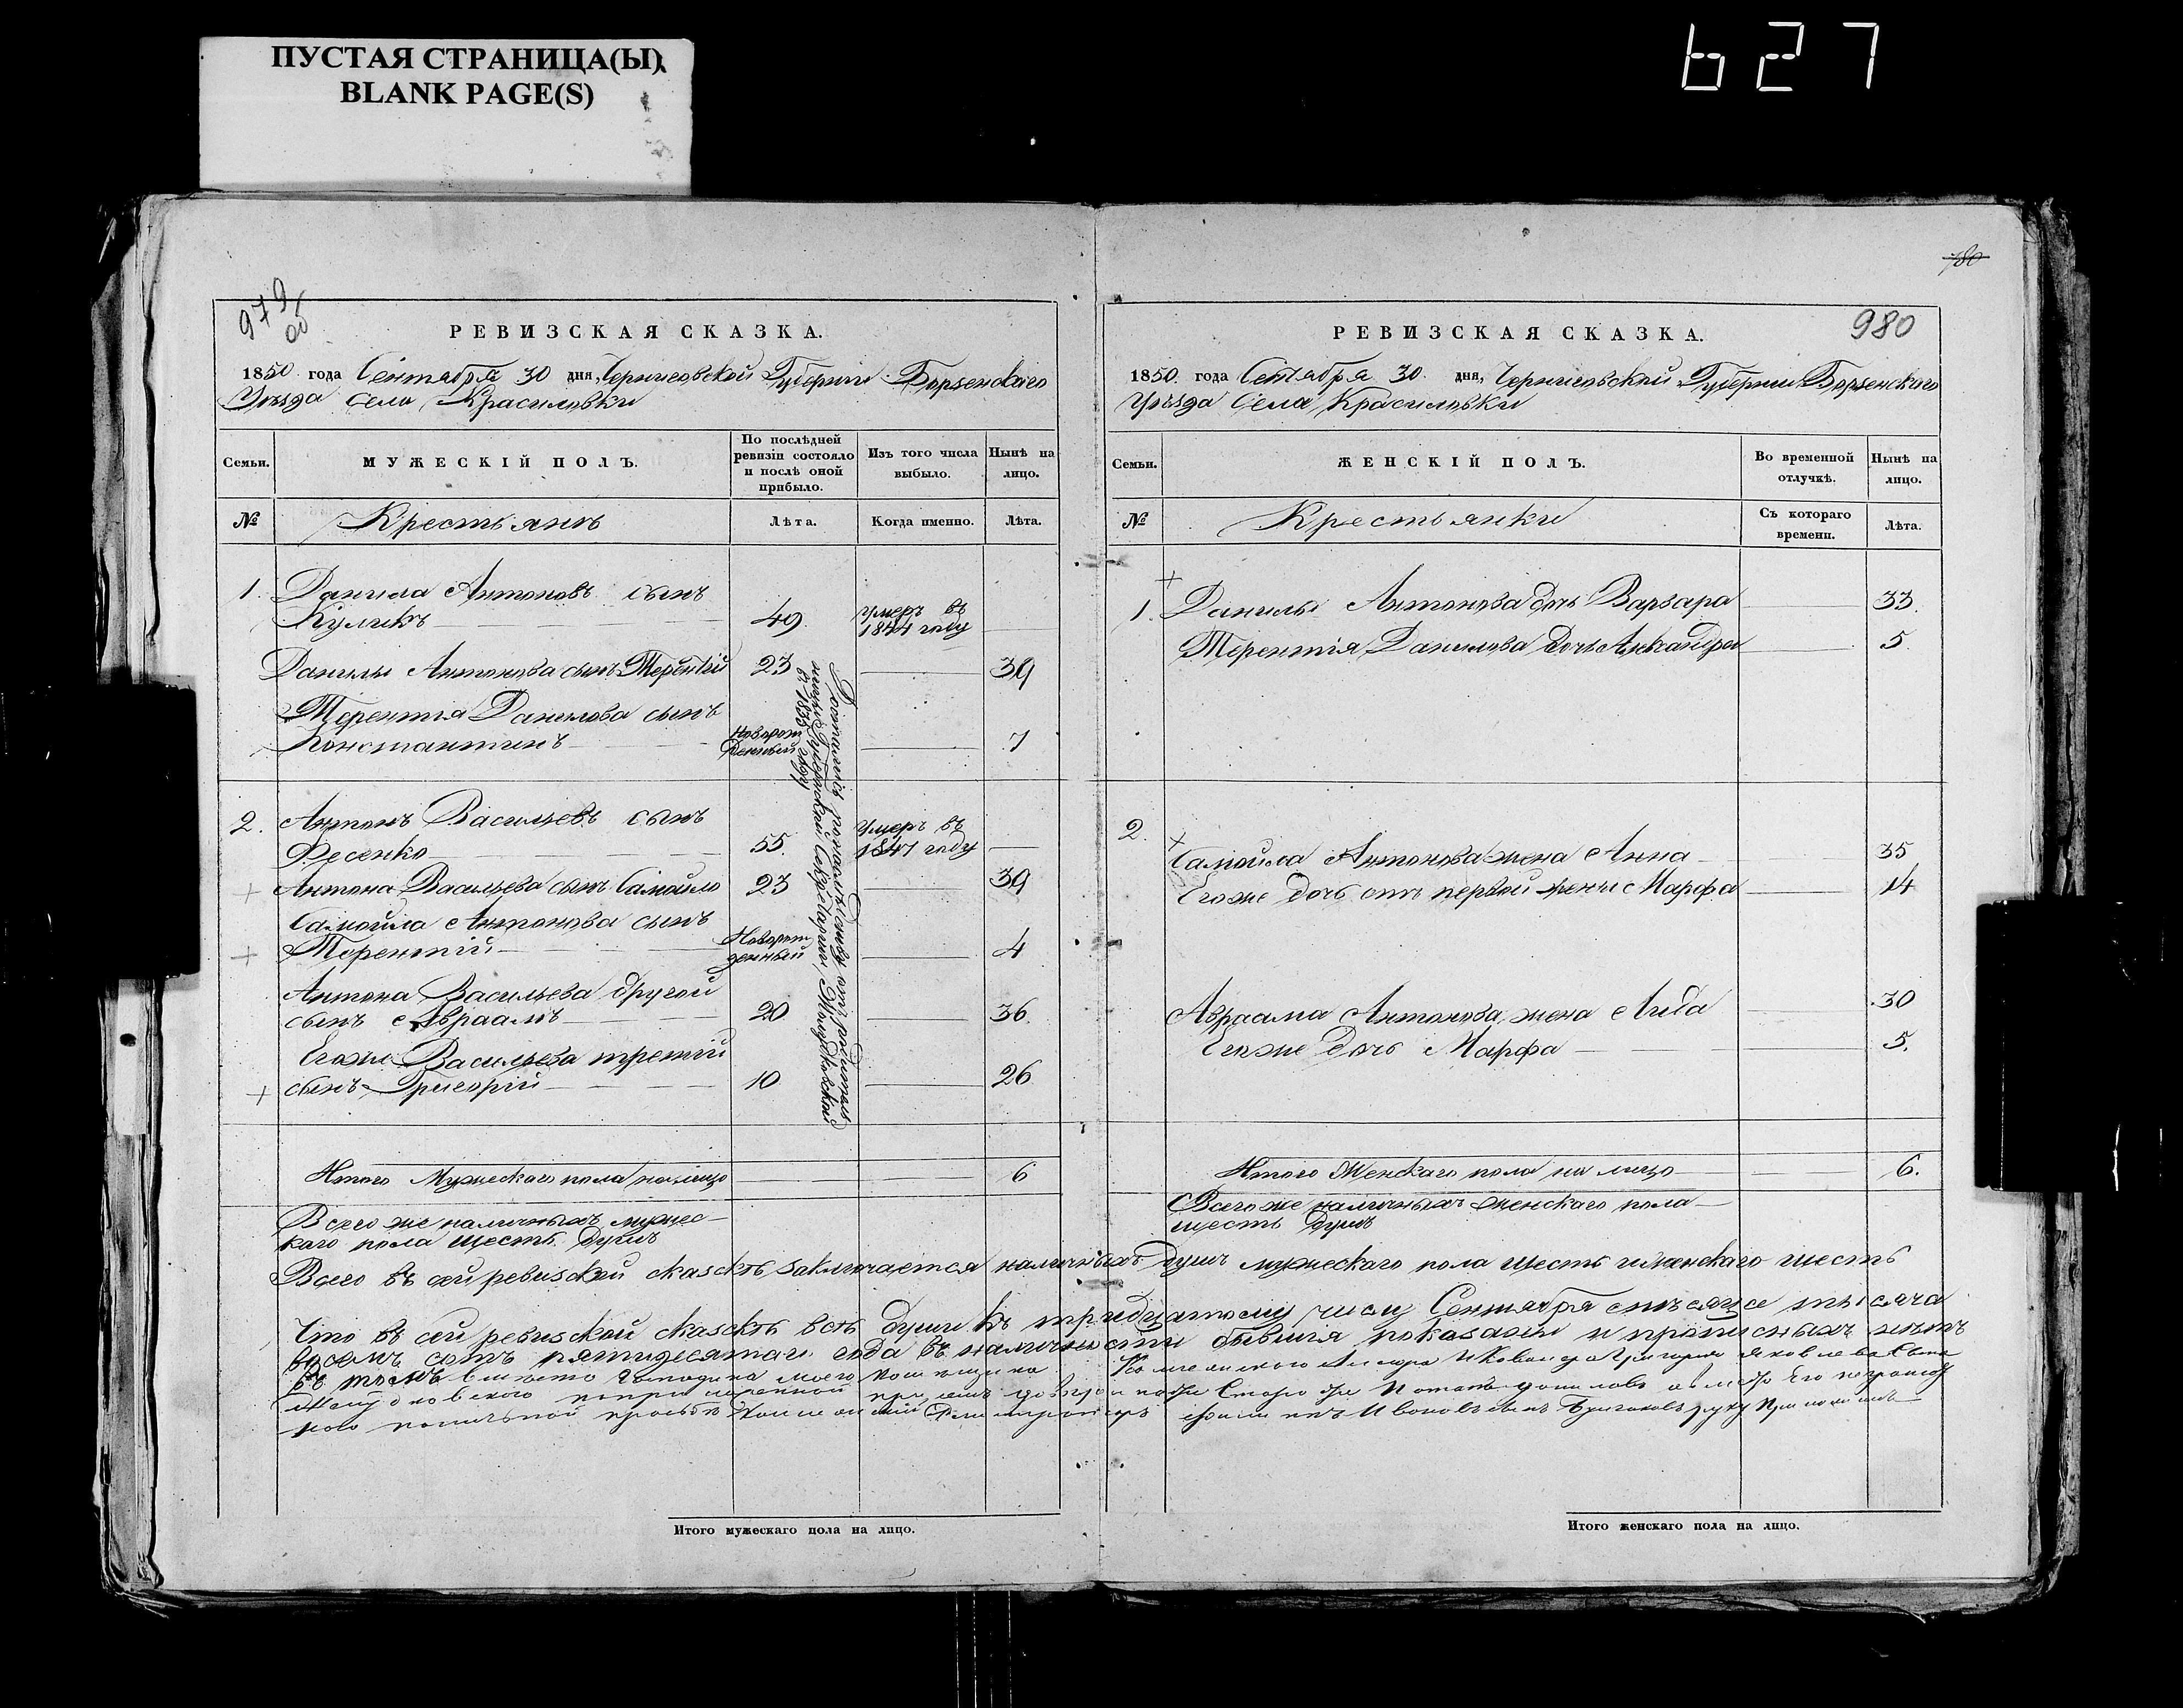 ПУСТАЯ СТРАНИЦА(Ы)
BLANK PAGE(S)
627
780
979
об
РЕВИЗСКАЯ СКАЗКА.
1850 года Сентября 30 дня, Черниговской Губернии Борзенского
Уѣзда Села Красиловки
Семьи.
МУЖЕСКІЙ ПОЛЪ.
По послѣдней ревизіи состояло и послѣ оной прибыло.
Изъ того числа выбыло.
Нынѣ на лицо.
№
Крестьянъ
Лѣта.
Когда именно.
Лѣта.
1. Данила Антоновъ сынъ
Куликъ 49. умеръ въ 1844 году
Данилы Антонова сынъ Терентій 23 39
Терентія Данилова сынъ
Константинъ Новорожденный 7
2. Антонъ Васильевъ сынъ
Фесенко 55. Умеръ въ 1847 году
Антона Васильева сынъ Самойло 23 39
Самойла Антонова сынъ
Терентій Новорожденный 4
Антона Васильева другой
сынъ Авраамъ 20 36.
Егоже Васильева третій
сынъ Григорій 10 26
въ 1835 году
Итого Мужескаго пола на лицо 6
Всего же наличныхъ мужес-
каго пола шесть душъ
980
РЕВИЗСКАЯ СКАЗКА.
1850. года Сентября 30. дня, Черниговской Губернии Борзенского
Уѣзда Села Красиловки
Семьи.
ЖЕНСКІЙ ПОЛЪ.
Во временной отлучкѣ.
Нынѣ на лицо.
№
Крестьянки
Съ котораго времени.
Лѣта.
1. Данилы Антонова дочь Варвара 33.
Терентія Данилова дочь Александра 5.
2. Самойла Антонова жена Анна 35
Егоже дочь отъ первой жены Марфа 14
Авраама Антонова жена 30
Егоже дочь Марфа 5.
Итого Женскаго пола на лицо 6.
Всего же наличныхъ женскаго пола
шесть душъ
Всего въ сей ревизской сказкѣ заключается наличныхъ душъ мужескаго пола шесть и женскаго шесть
Что въ сей ревизской сказкѣ всѣ души къ тридцатому числу Сентября мѣсяца тысяча
восемь сотъ пятидесятаго года въ наличности бывшія показаны и прописныхъ нѣтъ
въ томъ вместо Господина моего
Итого мужескаго пола на лицо.
Итого женскаго пола на лицо.